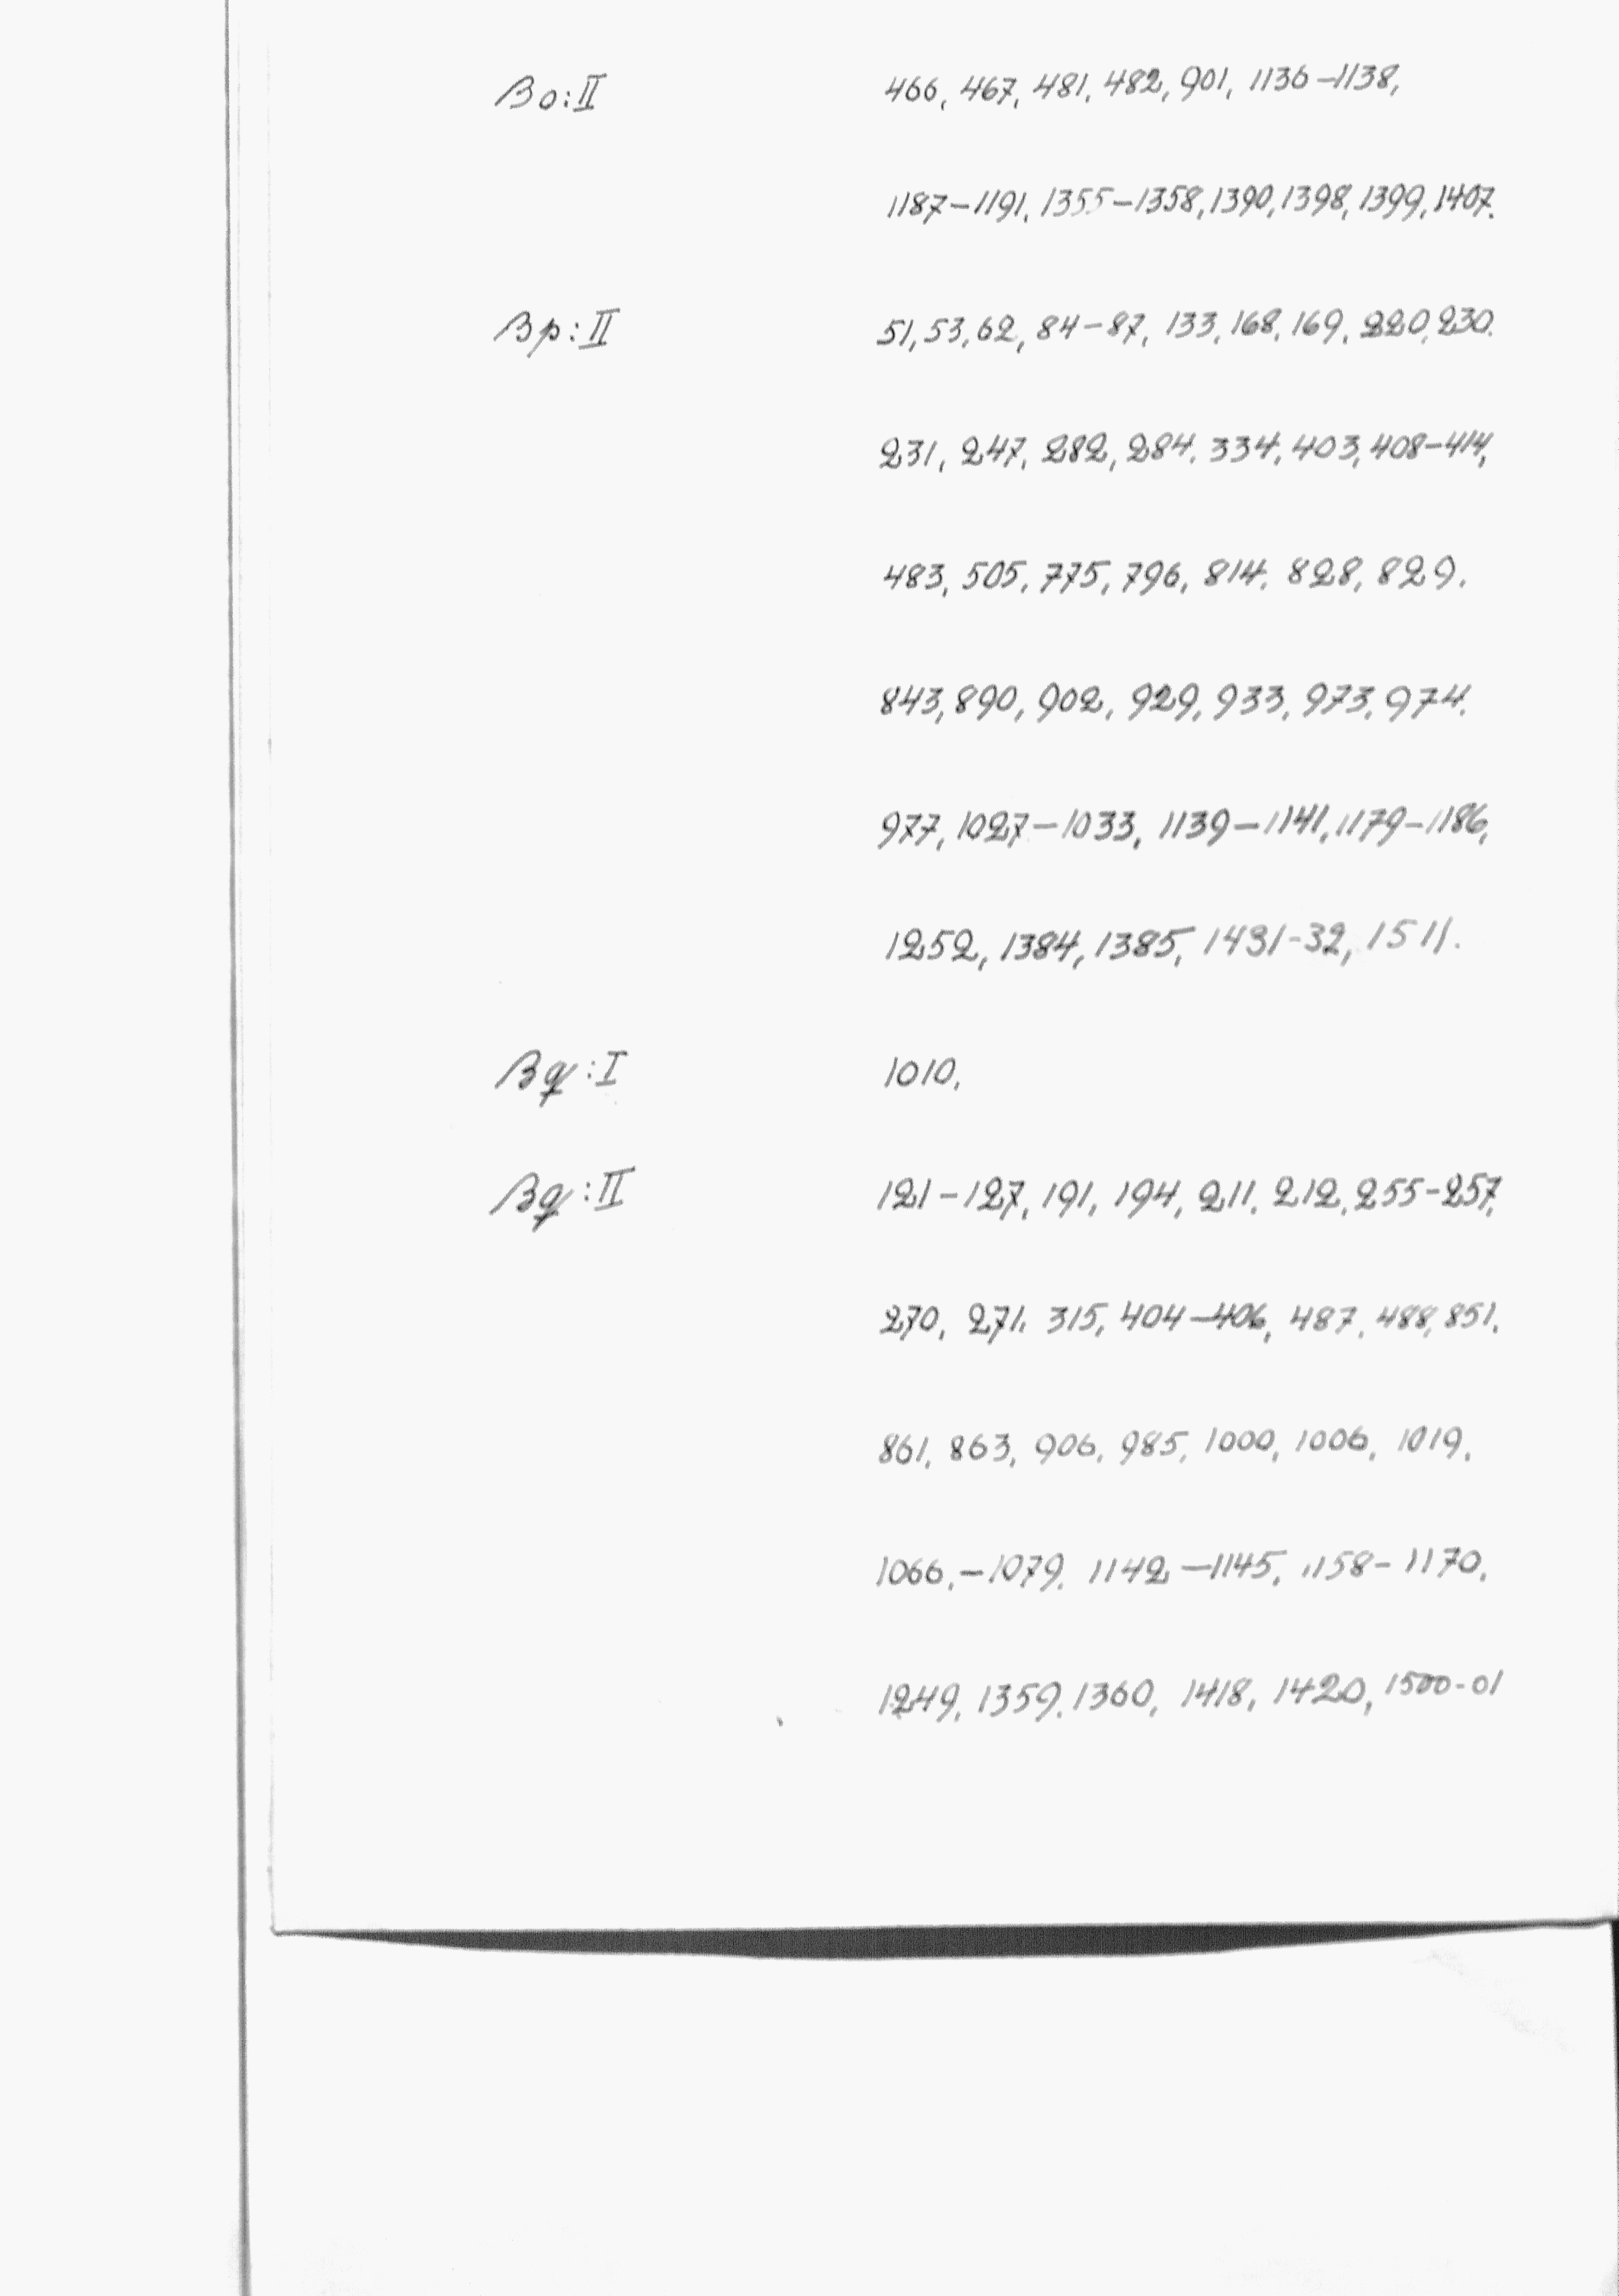 Bo:II 466, 467, 481, 482, 901, 1136-1138,
1187-1191, 1355-1358, 1390, 1398, 1399, 1407.
Bp:II 51, 53, 62, 84-87, 133, 168, 169, 220, 230.
231, 247, 282, 284, 334, 403, 408-414,
483, 505, 775, 796, 814, 828, 829.
843, 890, 902, 929, 933, 973, 974.
977, 1027-1033, 1139-1141, 1179-1186,
1252, 1384, 1385, 1431-32, 1511.
Bq:I 1010,
Bq:II 121-127, 191, 194, 211, 212, 255-257,
270, 271, 315, 404-406, 487, 488, 851,
861, 863, 906, 985, 1000, 1006, 1019.
1066.-1079, 1142-1145, 1158-1170,
1249, 1359, 1360, 1418, 1420, 1500-01